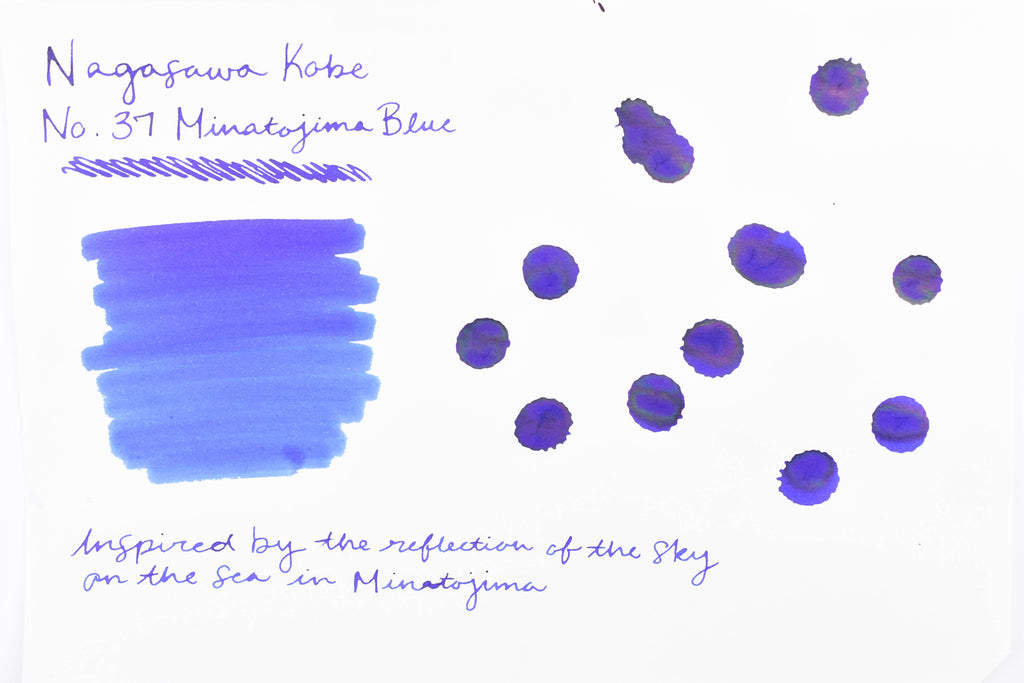 Nagasawa Kobe
No. 37 Minatojima Blue
Inspired by the reflection of the sky
on the sea in Minatojima